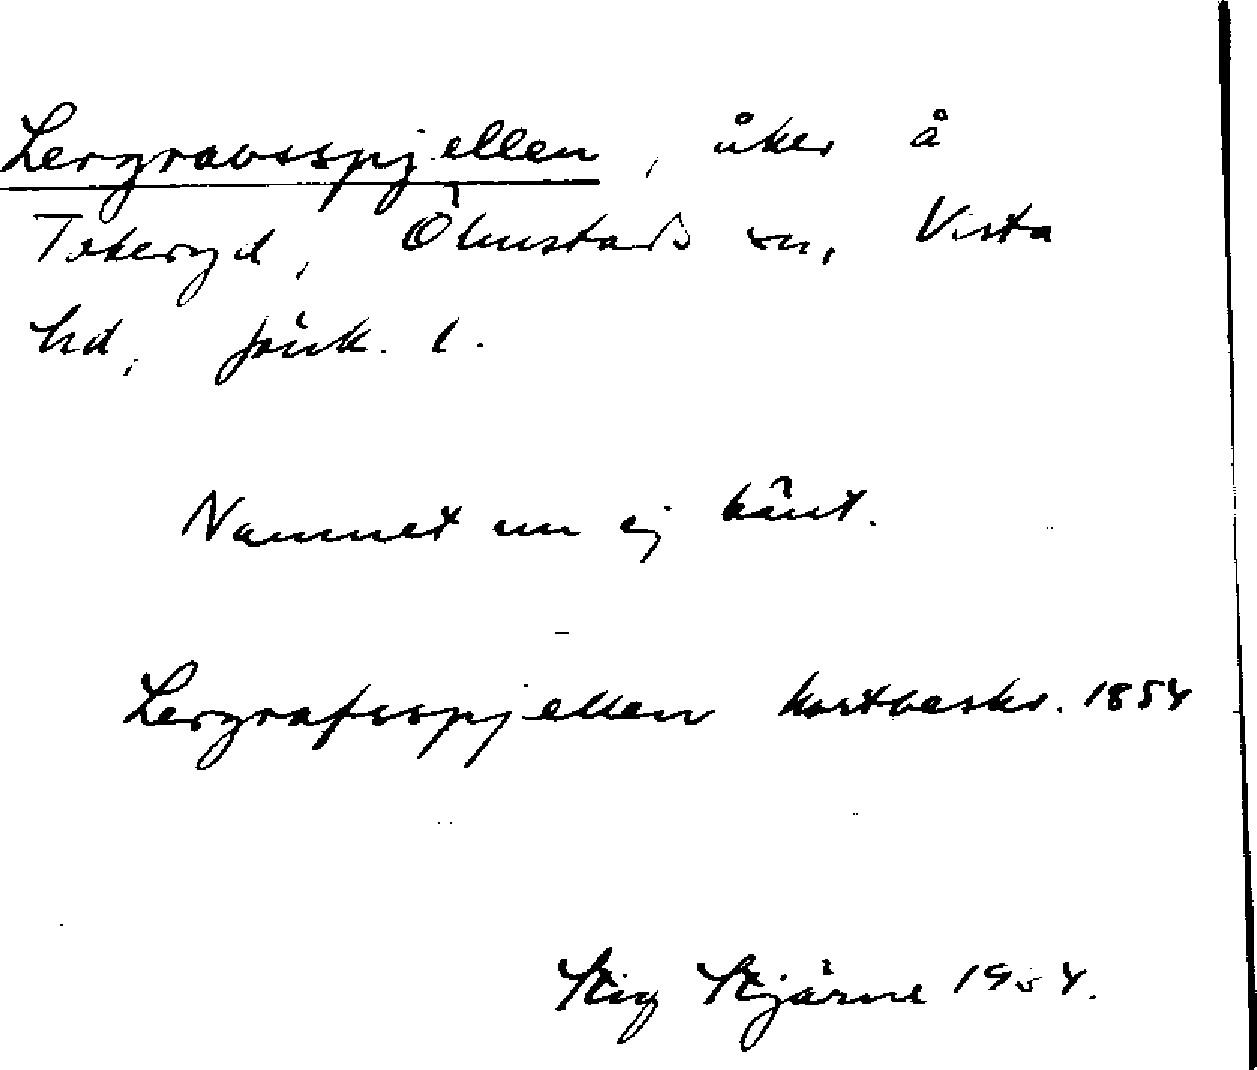 Lergravsspjellen, åker å
Tokeryd, Ölmstads sn, Vista
hd, Jönk. l.
Namnet nu ej känt.
Lergrafsspjellen kartbeskr. 1854
Stig Stjärne 1954.